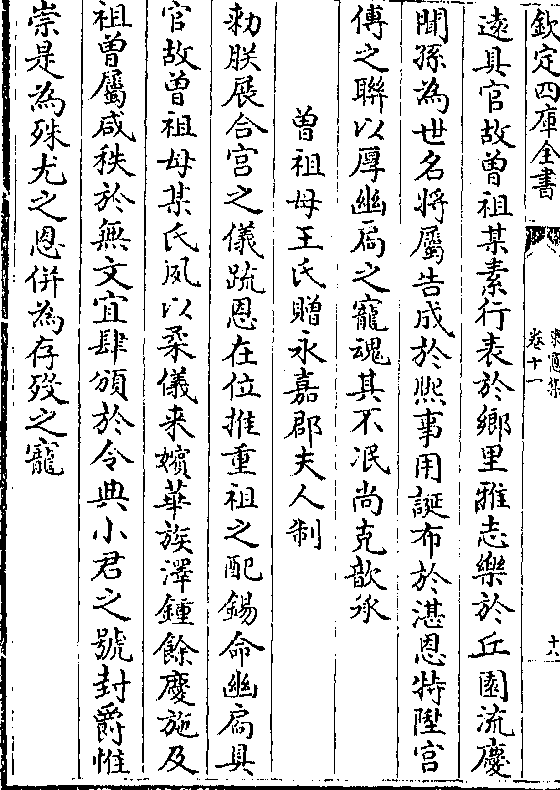 欽定四庫全書
卷十一
十八
逺具官故曽祖某素行表於鄉里雅志樂於丘園流慶
聞孫為世名將屬告成於熈事用誕布於湛恩特陞宫
傅之聨以厚幽扄之寵魂其不泯尚克歆承
曽祖母王氏贈永嘉郡夫人制
勅朕展合宫之儀疏恩在位推重祖之配錫命幽扄具
官故曽祖母某氏夙以柔儀来嬪華族澤鍾餘慶施及
祖曽屬咸秩於無文宜肆頒於令典小君之號封爵惟
崇是為殊尤之恩併為存殁之寵